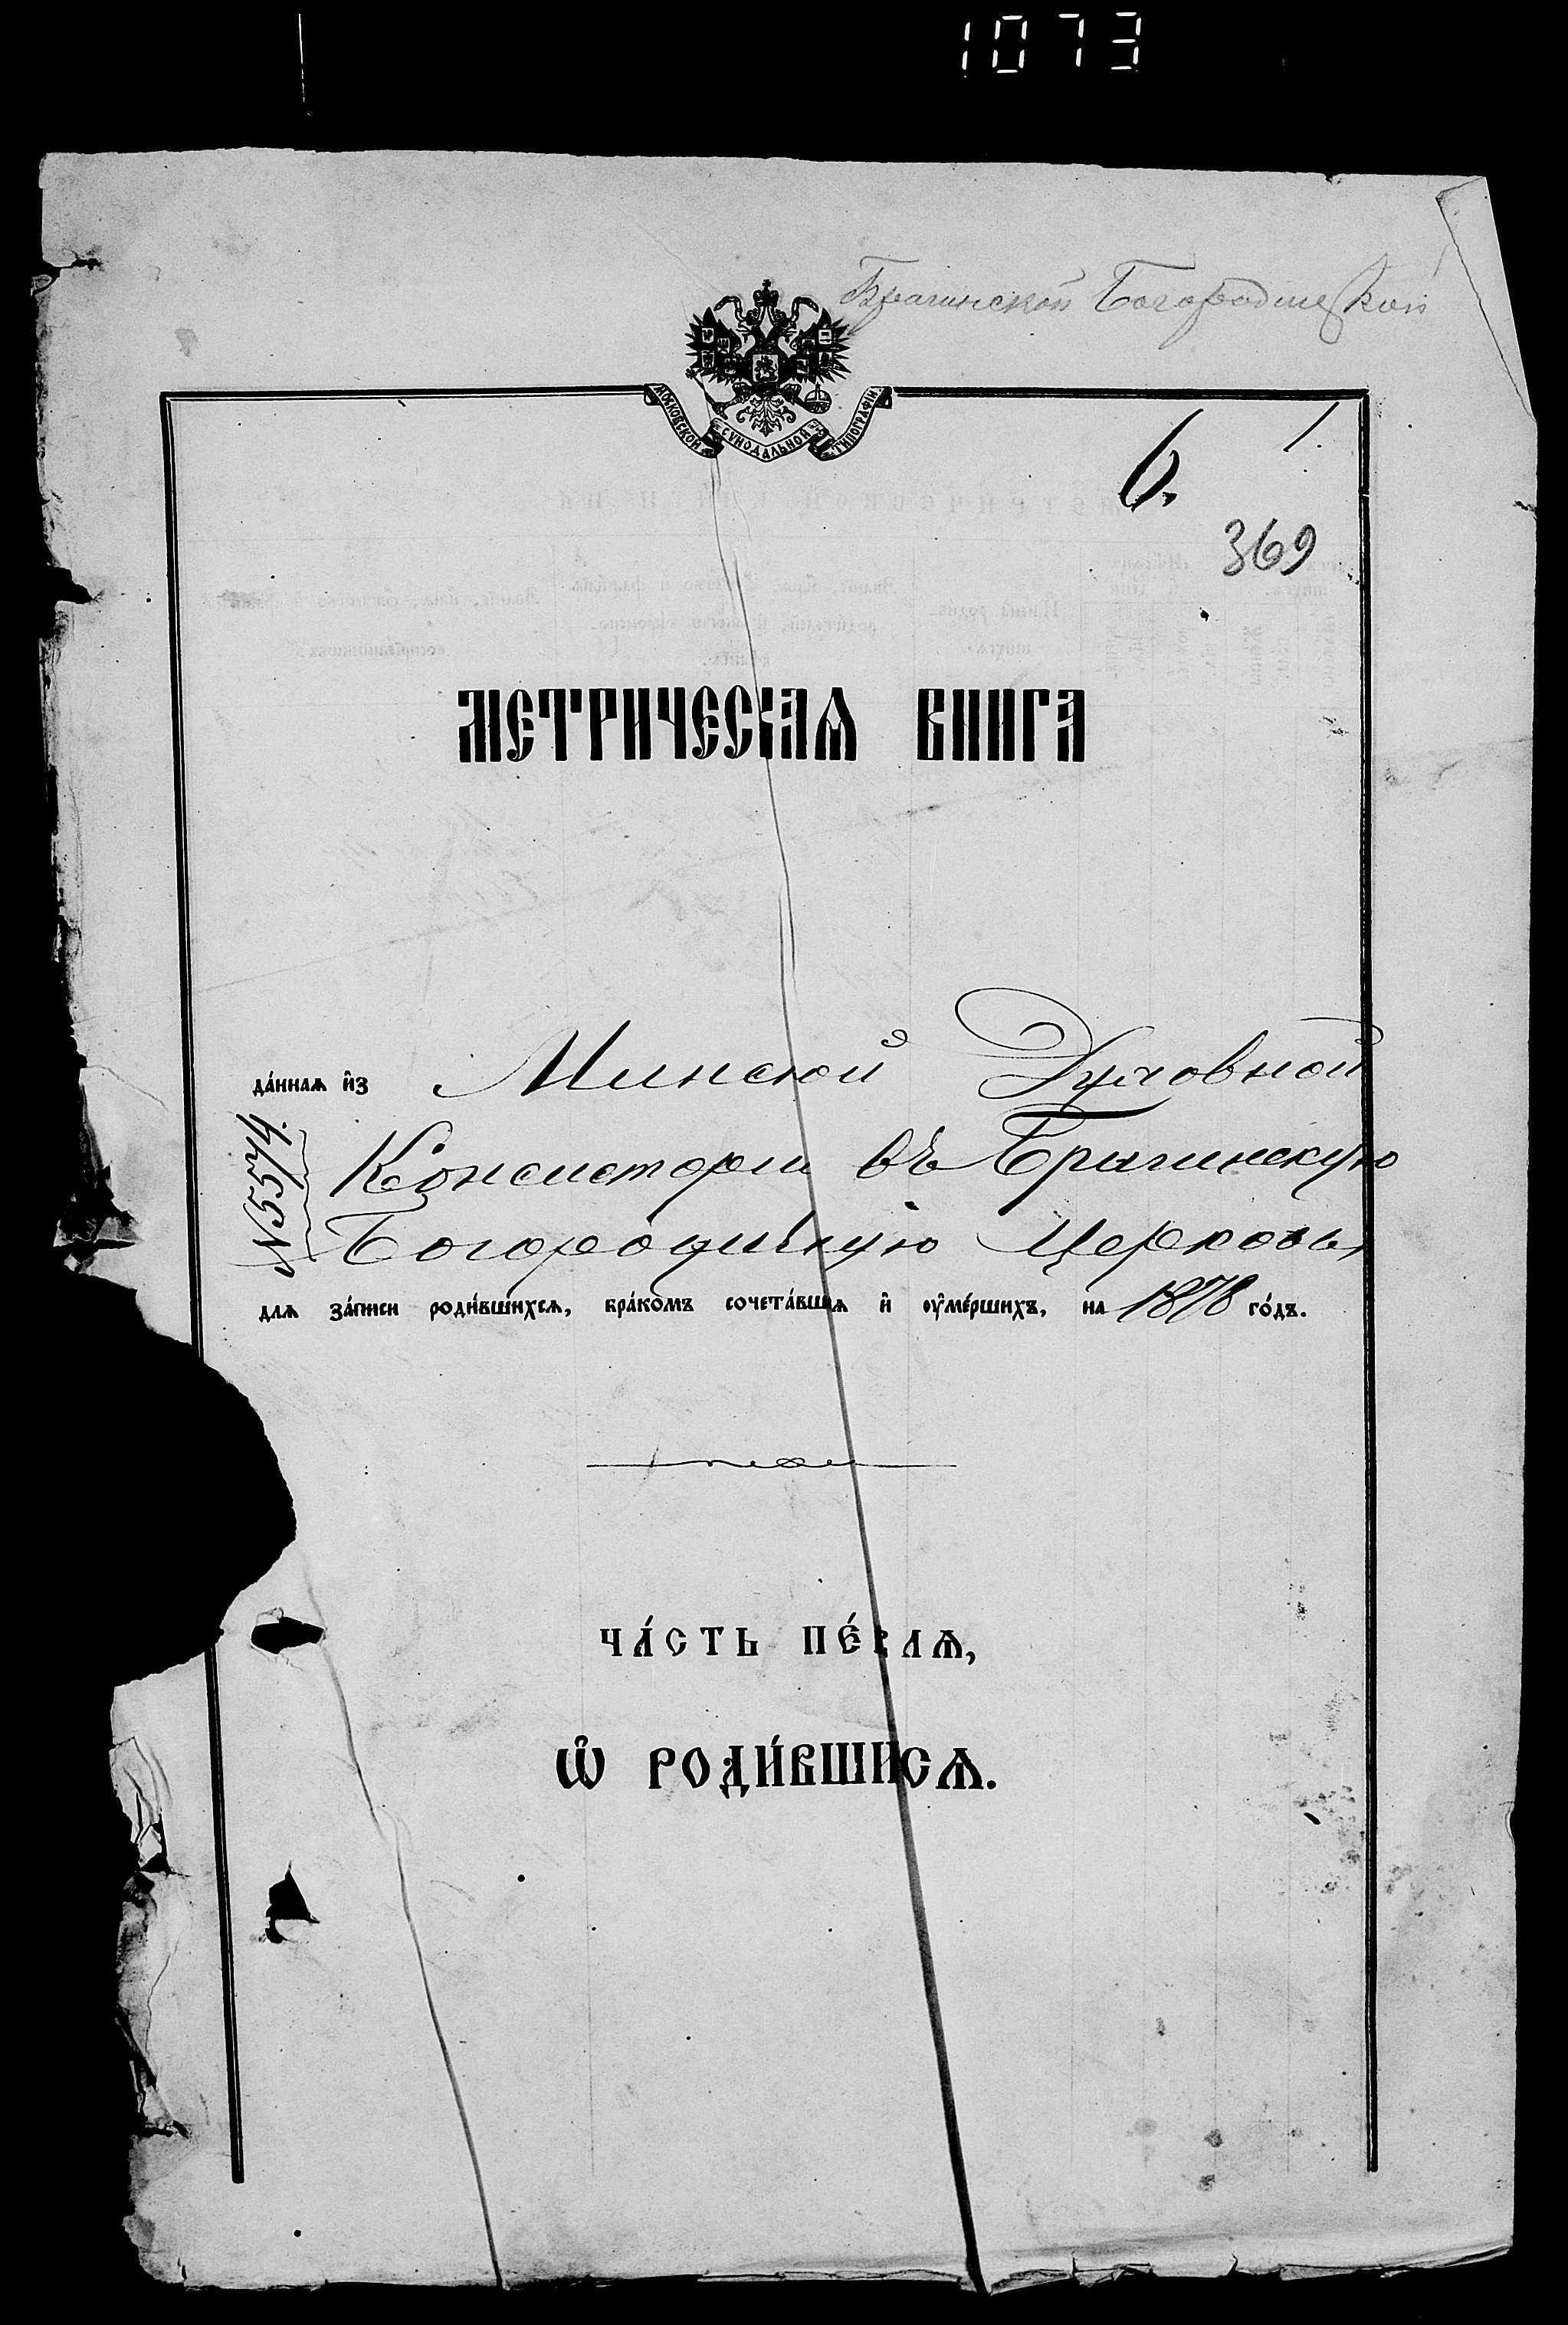 1073
Брагинской Богородицкой
МОСКОВСКОЙ СУНОДАЛЬНОЙ ТИПОГРАФІИ
1.
6.
369
МЕТРИЧЕСКАѦ КНИГА
да́ннаѧ и҆з Минской Духовной
№ 5574.
Консисторіи въ Брагинскую
Богородицкую Церковь,
для за́писи роди́вшихсѧ, бра́комъ сочета́вшихсѧ и҆ ᲂу҆ме́ршихъ, на 1878 го́дъ.
ЧА́СТЬ ПЕ́РВАѦ,
Ѡ҆ РОДИ́ВШИХСѦ.